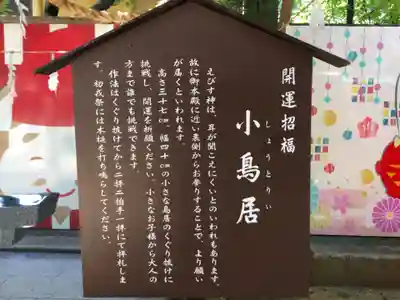 開運招福
小鳥居
しょうとりい
えびす神は、耳が聞こえにくいとのいわれもあります。
故に御本殿に近い裏側からお参りすることで、より願い
が届くといわれます。
高さ三十七㎝ 幅四十㎝の小さな鳥居のくぐり抜けに
挑戦し、開運を祈願ください。小さなお子様から大人の
方まで誰でも挑戦できます。
作法はくぐり抜けてから二拝二拍手一拝にて拝礼しま
す。初戎祭には木槌を打ち鳴らしてください。